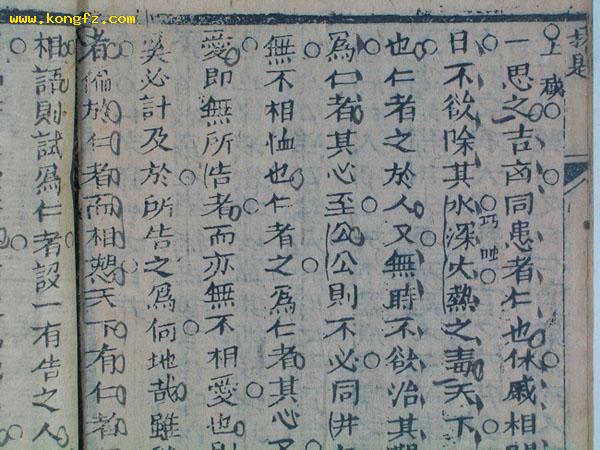 www.kongfz.com
是
上
一思之吉凶同患者仁也休戚相
巧
日不欲除其水深火熱之毒天下
也仁者之於人又無時不欲治其
爲仁者其心至公公則不必同井
無不相恤也仁者之爲仁者其心
愛即無所告者而亦無不相愛也則
奚必計及於所告之爲何地哉雖
者偏於仁者而相愬天下有仁者
相語則試爲仁者設一有告之人